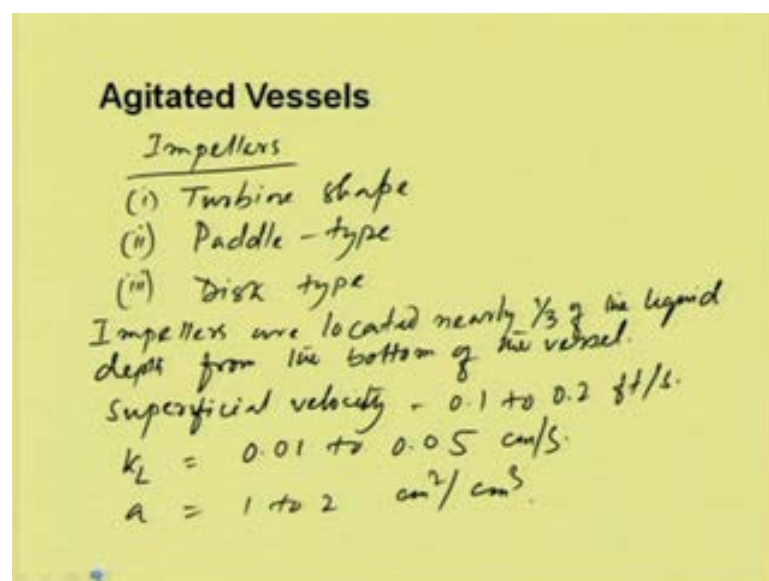 Agitated Vessels
Impellers
(i) Turbine shape
(ii) Paddle - type
(iii) Disk type
Impellers are located nearly 1/3 of the liquid
depth from the bottom of the vessel.
Superficial velocity - 0.1 to 0.2 ft/s.
k_L = 0.01 to 0.05 cm/s.
a = 1 to 2 cm²/cm³.